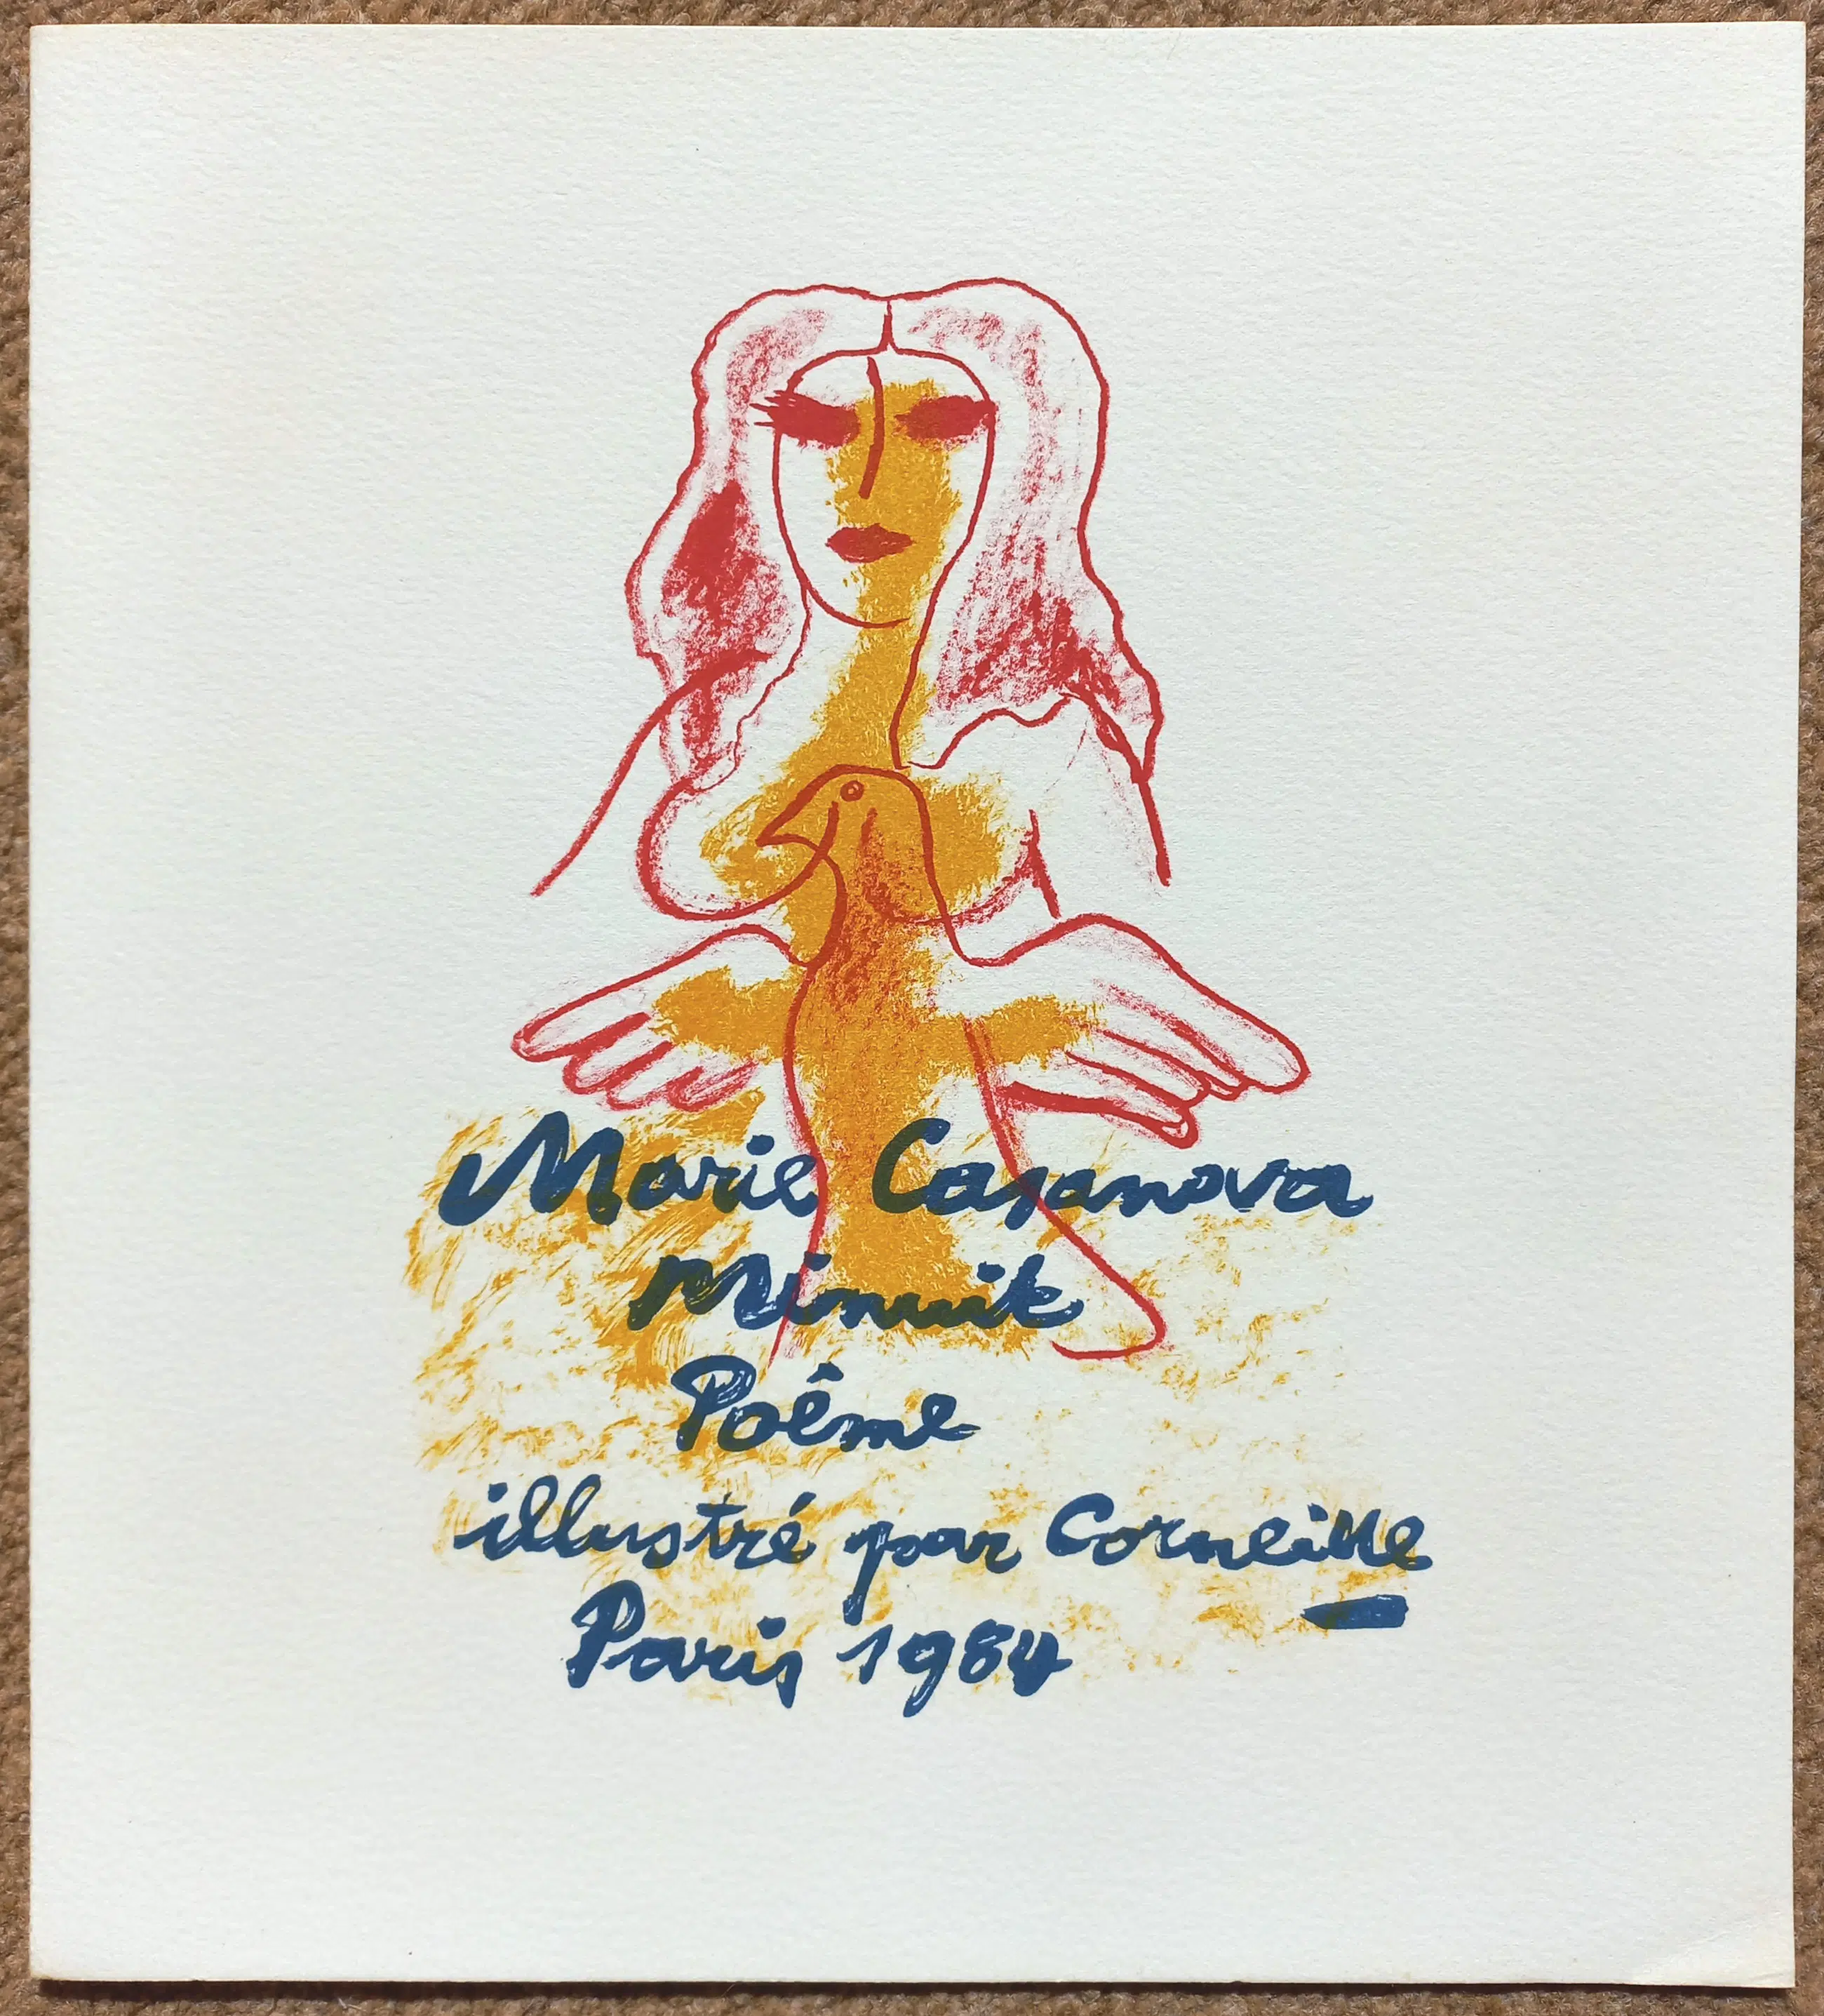 Marie Casanova
Minuit
Poême
illustré par Corneille
Paris 1984